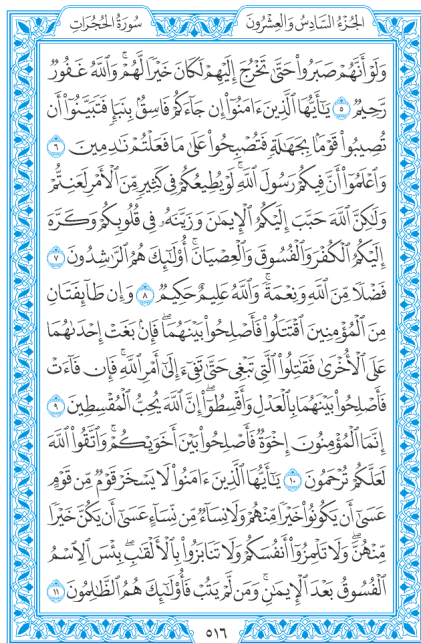 الجُزْءُ السَّادِسُ وَالعِشْرُونَ سُورَةُ الحُجُرَاتِ
وَلَوْ أَنَّهُمْ صَبَرُواْ حَتَّىٰ تَخْرُجَ إِلَيْهِمْ لَكَانَ خَيْرًا لَّهُمْۚ وَٱللَّهُ غَفُورٌ
رَّحِيمٌ ٥ يَٰٓأَيُّهَا ٱلَّذِينَ ءَامَنُوٓاْ إِن جَآءَكُمْ فَاسِقُۢ بِنَبَإٖ فَتَبَيَّنُوٓاْ أَن
تُصِيبُواْ قَوْمَۢا بِجَهَٰلَةٖ فَتُصْبِحُواْ عَلَىٰ مَا فَعَلْتُمْ نَٰدِمِينَ ٦
وَٱعْلَمُوٓاْ أَنَّ فِيكُمْ رَسُولَ ٱللَّهِۚ لَوْ يُطِيعُكُمْ فِي كَثِيرٖ مِّنَ ٱلْأَمْرِ لَعَنِتُّمْ
وَلَٰكِنَّ ٱللَّهَ حَبَّبَ إِلَيْكُمُ ٱلْإِيمَٰنَ وَزَيَّنَهُۥ فِي قُلُوبِكُمْ وَكَرَّهَ
إِلَيْكُمُ ٱلْكُفْرَ وَٱلْفُسُوقَ وَٱلْعِصْيَانَۚ أُوْلَٰٓئِكَ هُمُ ٱلرَّٰشِدُونَ ٧
فَضْلٗا مِّنَ ٱللَّهِ وَنِعْمَةٗۚ وَٱللَّهُ عَلِيمٌ حَكِيمٌ ٨ وَإِن طَآئِفَتَانِ
مِنَ ٱلْمُؤْمِنِينَ ٱقْتَتَلُواْ فَأَصْلِحُواْ بَيْنَهُمَاۖ فَإِنۢ بَغَتْ إِحْدَىٰهُمَا
عَلَى ٱلْأُخْرَىٰ فَقَٰتِلُواْ ٱلَّتِي تَبْغِي حَتَّىٰ تَفِيٓءَ إِلَىٰٓ أَمْرِ ٱللَّهِۚ فَإِن فَآءَتْ
فَأَصْلِحُواْ بَيْنَهُمَا بِٱلْعَدْلِ وَأَقْسِطُوٓاْۖ إِنَّ ٱللَّهَ يُحِبُّ ٱلْمُقْسِطِينَ ٩
إِنَّمَا ٱلْمُؤْمِنُونَ إِخْوَةٞ فَأَصْلِحُواْ بَيْنَ أَخَوَيْكُمْۚ وَٱتَّقُواْ ٱللَّهَ
لَعَلَّكُمْ تُرْحَمُونَ ١٠ يَٰٓأَيُّهَا ٱلَّذِينَ ءَامَنُواْ لَا يَسْخَرْ قَوْمٌ مِّن قَوْمٍ
عَسَىٰٓ أَن يَكُونُواْ خَيْرٗا مِّنْهُمْ وَلَا نِسَآءٌ مِّن نِّسَآءٍ عَسَىٰٓ أَن يَكُنَّ خَيْرٗا
مِّنْهُنَّۖ وَلَا تَلْمِزُوٓاْ أَنفُسَكُمْ وَلَا تَنَابَزُواْ بِٱلْأَلْقَٰبِۖ بِئْسَ ٱلِٱسْمُ
ٱلْفُسُوقُ بَعْدَ ٱلْإِيمَٰنِۚ وَمَن لَّمْ يَتُبْ فَأُوْلَٰٓئِكَ هُمُ ٱلظَّٰلِمُونَ ١١
٥١٦